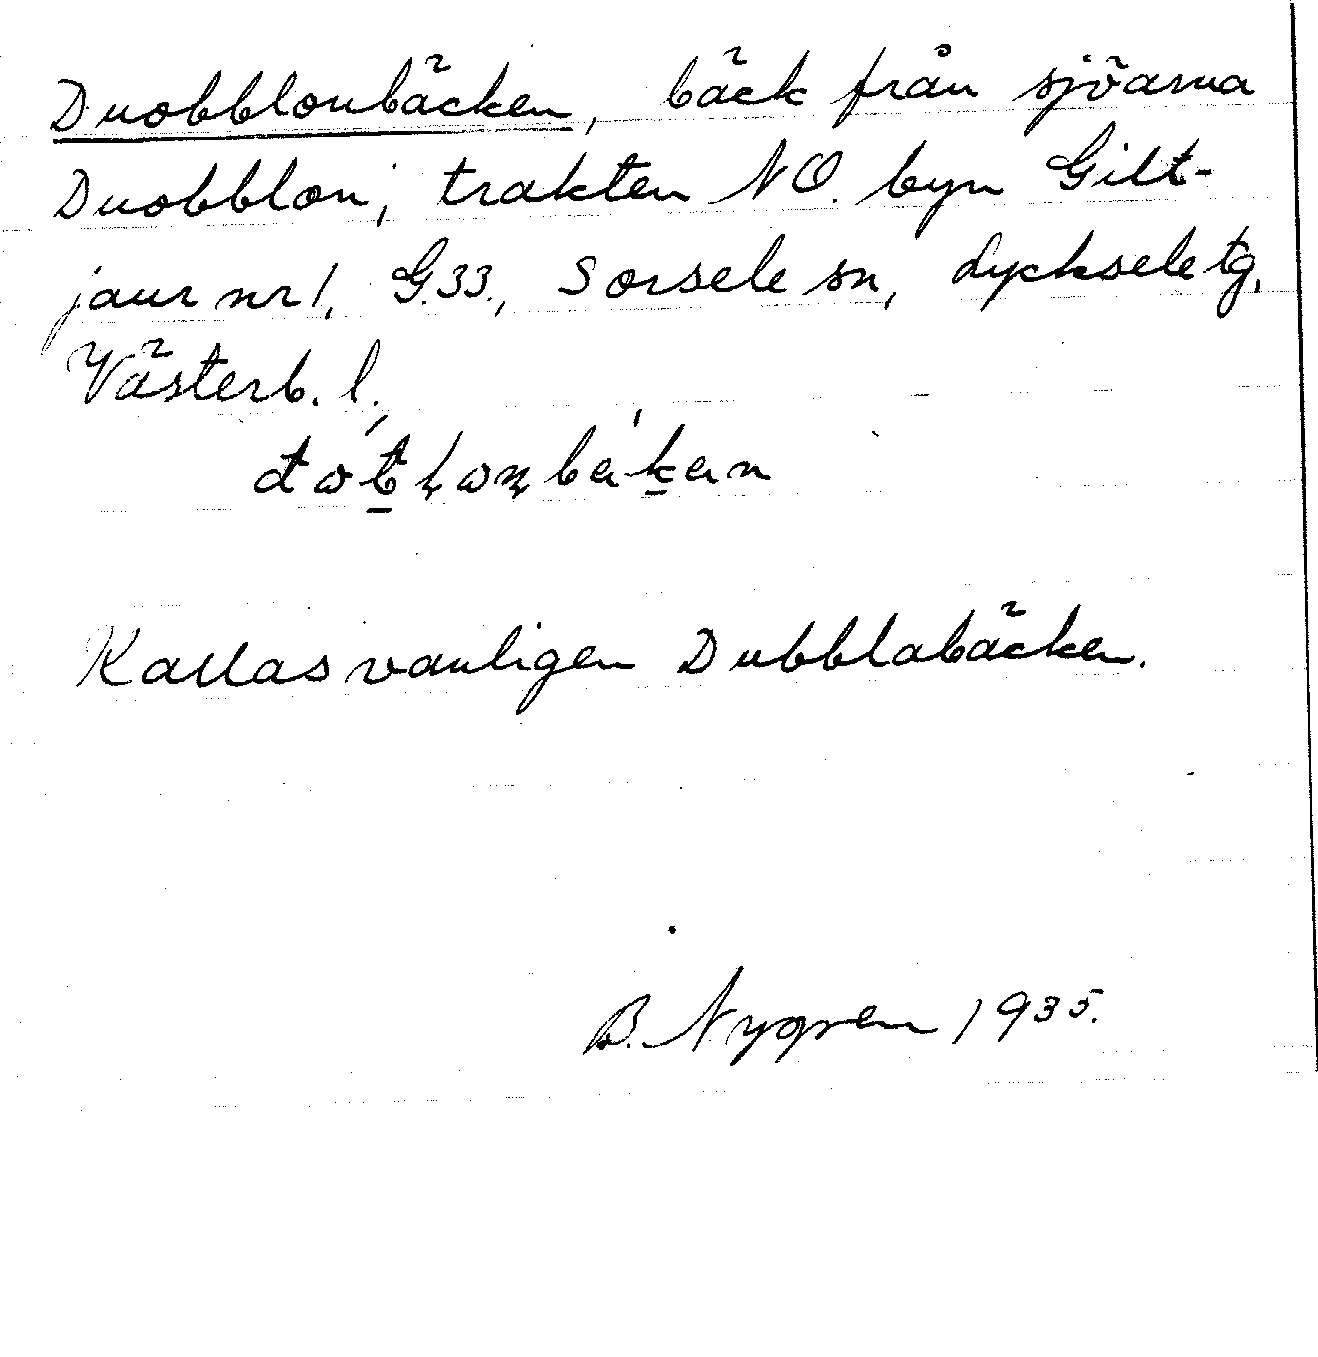 Duobblonbäcken, bäck från sjöarna
Duobblon, trakten NO. byn Gilt-
jaur nr 1, G.33., Sorsele sn, Lycksele tg,
Västerb. l.
Kallas vanligen Dubblabäcken.
B. Nygren 1935.